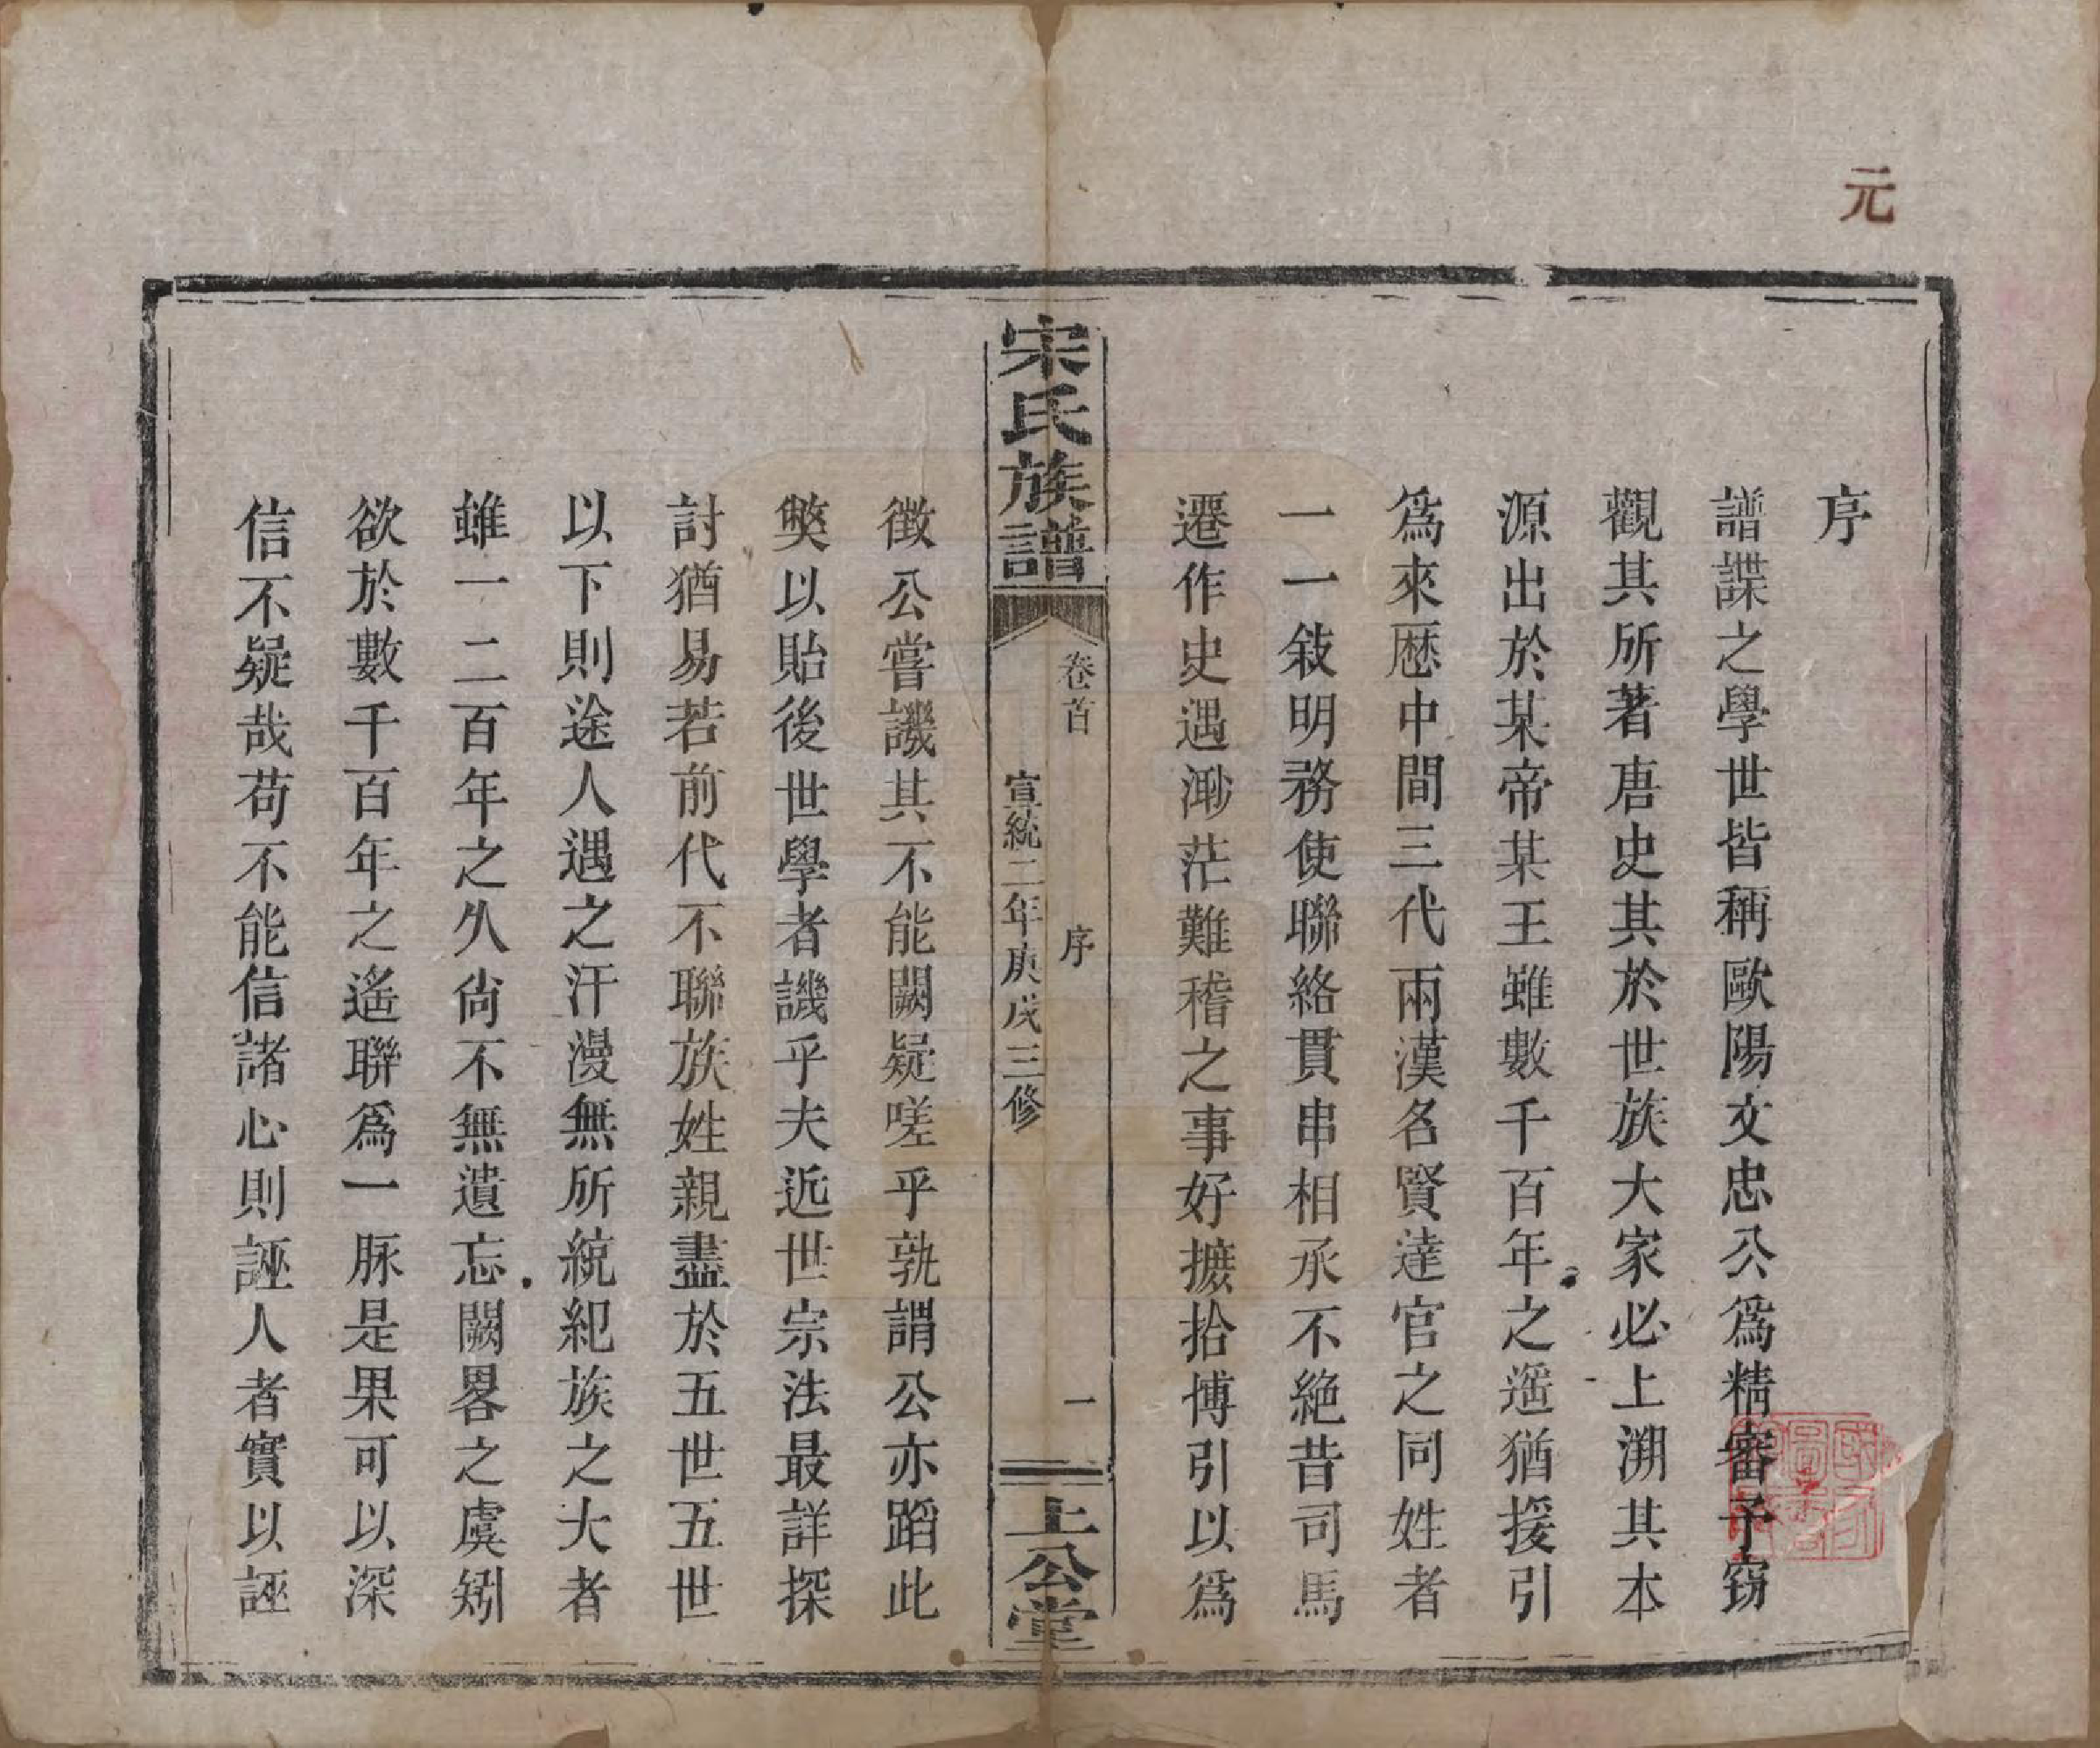 元
序
譜諜之學世皆稱歐陽文忠公爲精審予窃
觀其所著唐史其於世族大家必上溯其本
源出於某帝某王雖數千百年之遥猶援引
爲來歷中間三代兩漢名賢達官之同姓者
一一敍明務使聯絡貫串相承不絶昔司馬
遷作史遇渺茫難稽之事好摭拾博引以爲
宋氏族譜
卷首
序
一
宣統二年庚戌三修
上公堂
徴公嘗譏其不能闕疑嗟乎孰謂公亦蹈此
獘以貽後世學者譏乎夫近世宗法最詳探
討猶易若前代不聯族姓親盡於五世五世
以下則途人遇之汗漫無所統紀族之大者
雖一二百年之久尙不無遺忘闕畧之虞矧
欲於數千百年之遙聯爲一脉是果可以深
信不疑哉苟不能信諸心則誣人者實以誣